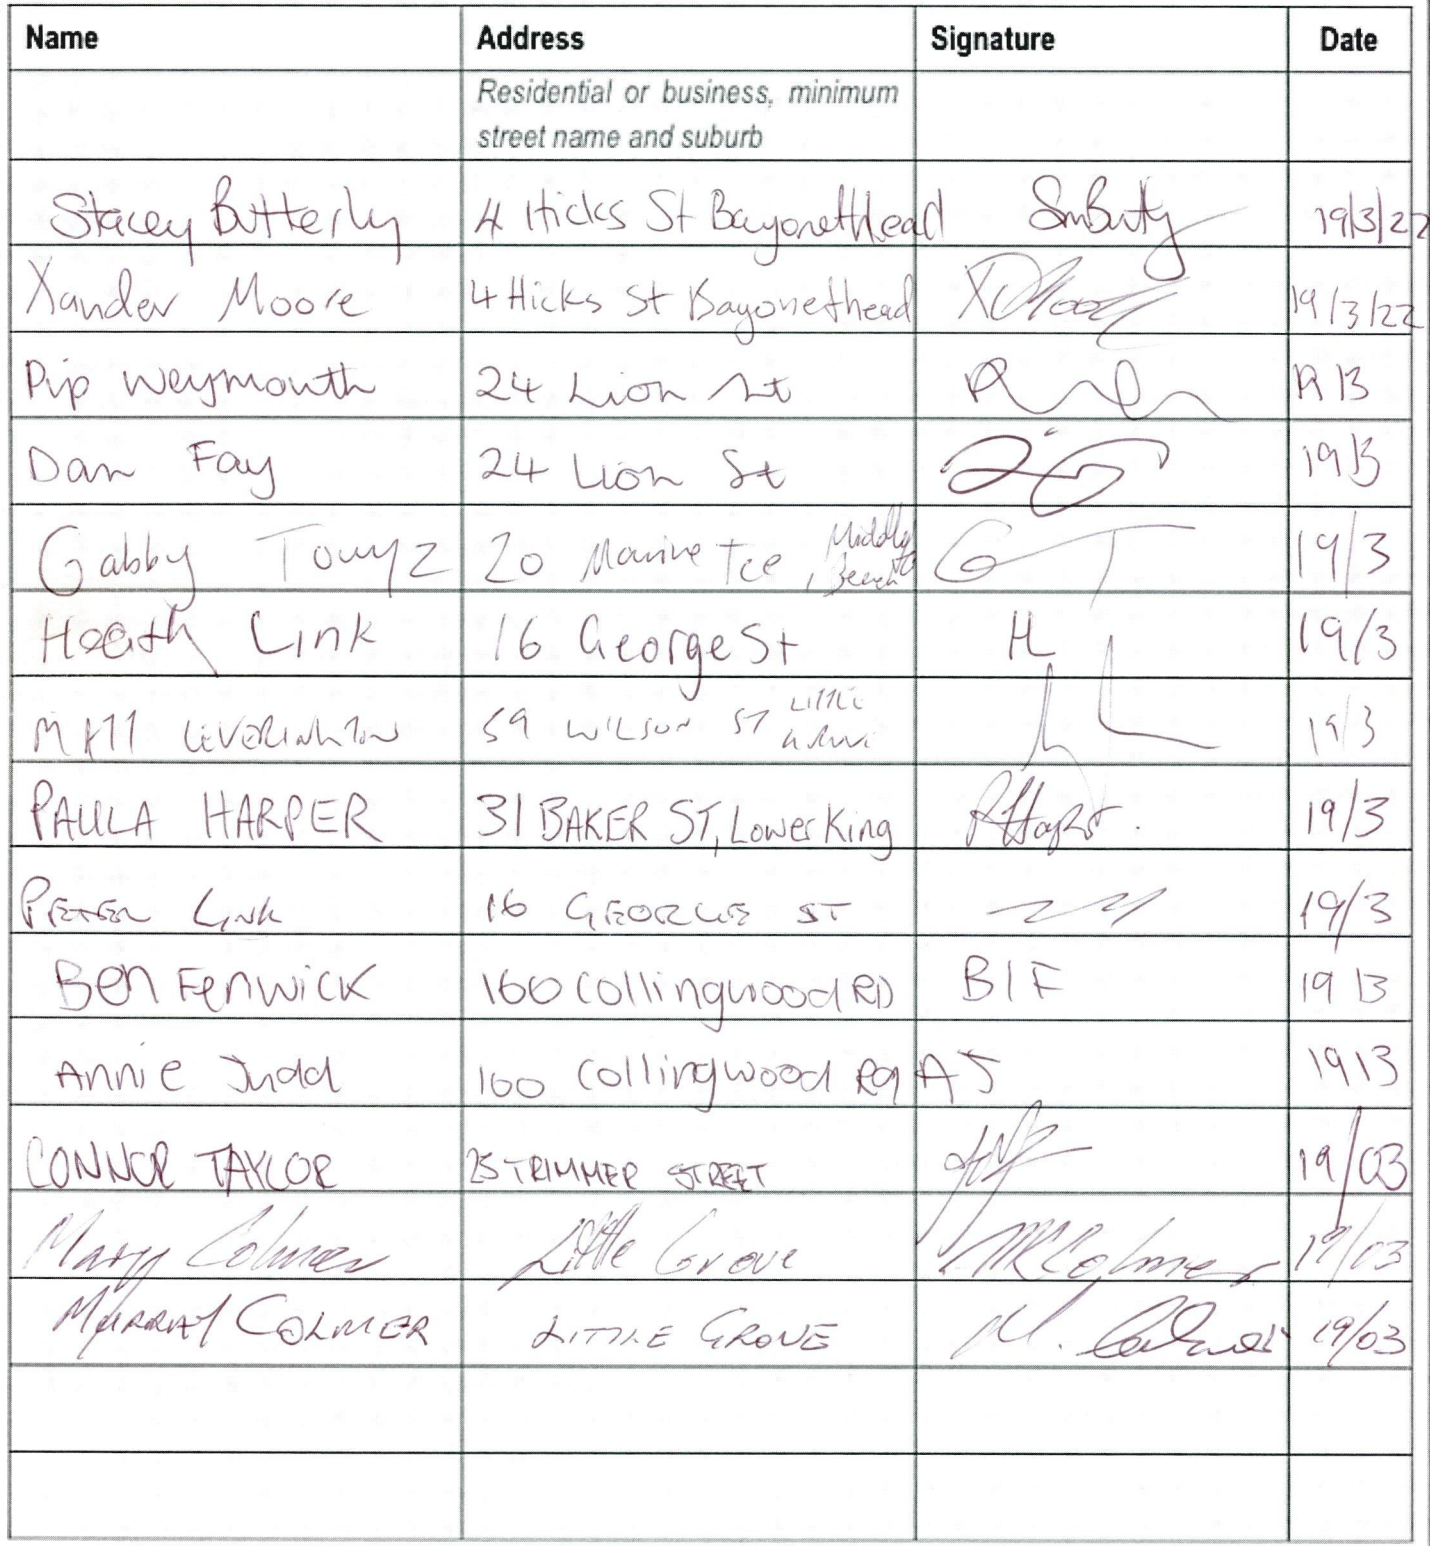 Name Address Signature Date
Residential or business, minimum
street name and suburb
Stacey Butterly 4 Hicks St Bayonethead 19/3/22
Xander Moore 4 Hicks St Bayonethead 19/3/22
Pip Weymouth 24 Lion St 19/3
Dan Fay 24 Lion St 19/3
Gabby 20 Marine Tce, Middleton Beach 19/3
Heath Link 16 George St H L 19/3
MATT LEVERINGTON 59 WILSON ST LITTLE 19/3
PAULA HARPER 31 BAKER ST, Lower King PHarper. 19/3
PETER LINK 16 GEORGE ST 19/3
Ben Fenwick 160 Collingwood RD B I F 19/3
Annie Judd 160 Collingwood Rd A J 19/3
CONNOR TAYLOR 25 TRIMMER STREET 19/03
Mary Colmer Little Grove MKColmer 19/03
MURRAY COLMER LITTLE GROVE M. Colmer 19/03